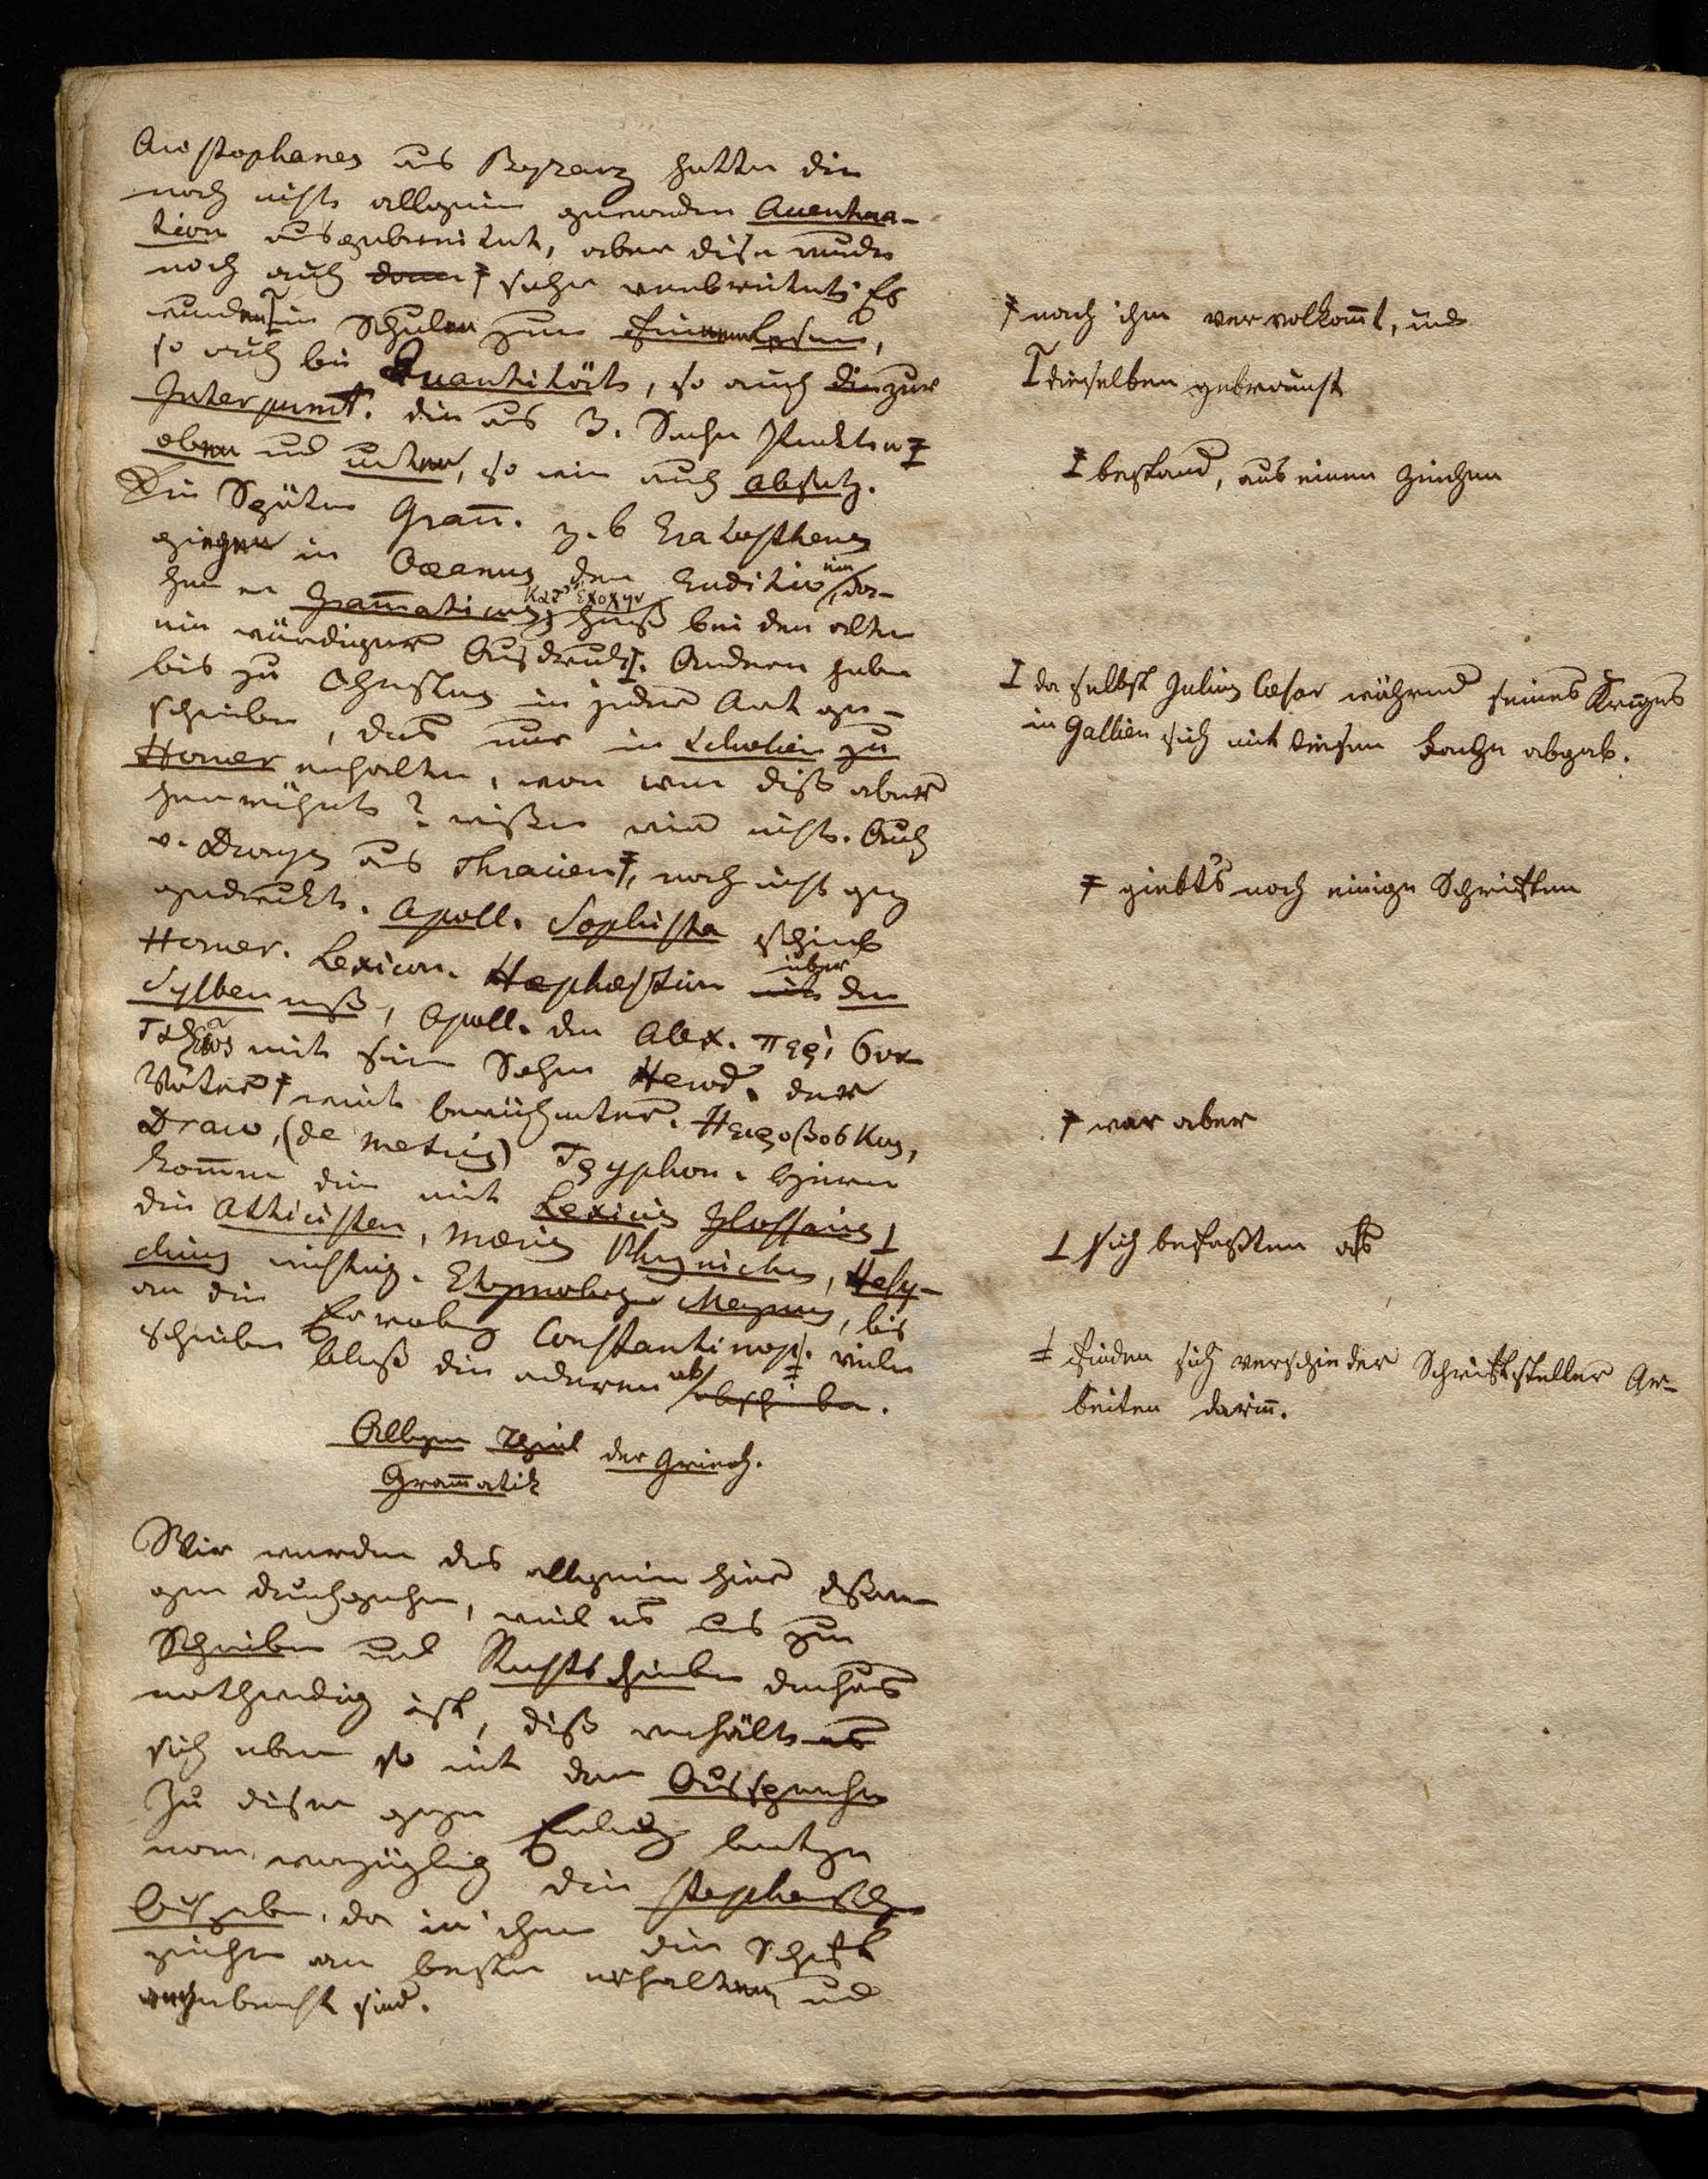 Aristophanes aus Byzanz hatte die
noch nicht allgemein gewordne Accentua-
tion ausgebreitet, aber dise wurde
noch auch denn ⨎ sehr verbreitet. Es
wurden in Schulen zum
so auch bei Quantität, so auch die zur
Interpunct. die aus 3. Sachen Punkten
oben und unten, so wie auch Absatz.
Die Spätern Gram̄. z. b Eratosthenes
giengen in Oceanus der Eruditio ein, da-
her er Grammaticus κατ' εξοχην hieß bei den alten
ein würdiger Ausdruck. Andere haben
bis zu Christus in jeder Art ge-
schrieben, das nur in Scholien zu
Homer enhalten, von wem diß aber
herrührt? wißen wir nicht. Auch
v. Dionys aus Thracien ⨎, noch nicht ganz
gedruckt. Apoll. Sophista schrieb
Homer. Lexicon. Hephæstion mit über den
Sylbenmaß, Apoll. der Alex. περι συν
ταξεως mit sein Sohn Herod. der
Vater ⨎ weit berühmter.
Draco, (de metris) Tryphon. Hieran
kommen die mit Lexicis Glossariis ⊥
die Atticisten, Mœris Phrynichus, Hesy-
chius wichtig. Etymolog. Magnum, bis
an die Eroberung Constantinop. viele
schrieben bloß die anderen ab abschrieben.
Allgem Theil der Griech.
Gram̄atik
Wir werden das allgemein hier deßwe-
gen durchgehen, weil es uns zum
Schreiben und Rechtschreiben durchaus
nothwendig ist, diß verhält es
sich eben so mit dem Aussprechen
Zu disem
man vorzüglich die stephanisch
Ausgaben, da in ihnen die Schrift
zeichen am besten erhalten und
angebracht sind.
⨎ nach ihm vervolkom̄t, und
dieselben gebraucht
bestand, aus einem Zeichen
da selbst Julius Cæsar während seines Krieges
in Gallien sich mit diesem Fache abgab.
⨎ giebt's noch einige Schriften
⨎ war aber
⊥ sich befaßten als
finden sich verschiedner Schriftsteller Ar-
beiten darin̄.